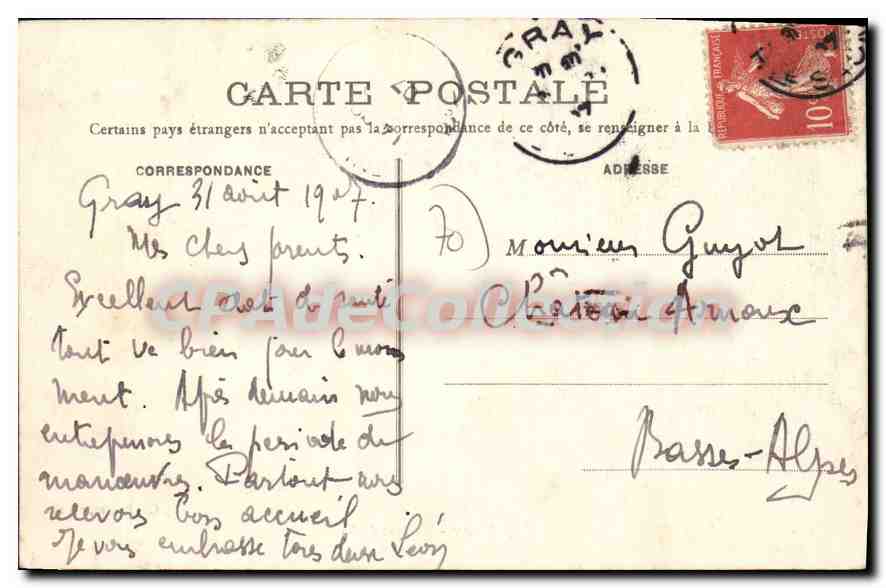 GRAY
CARTE POSTALE
Certains pays étrangers n'acceptant pas la correspondance de ce côté, se renseigner à la
CORRESPONDANCE
ADRESSE
REPUBLIQUE FRANÇAISE
POSTES
10
Gray 31 août 1907.
Mes chers parents.
Excellent état de santé
tout va bien pour le mo
ment. Après demain nous
entreprenons la période de
manœuvres. Partout nous
recevons bon accueil
Je vous embrasse tous deux Léon
70
Monsieur Guyot
Château Arnoux
Basses-Alpes
CPAdeCollection